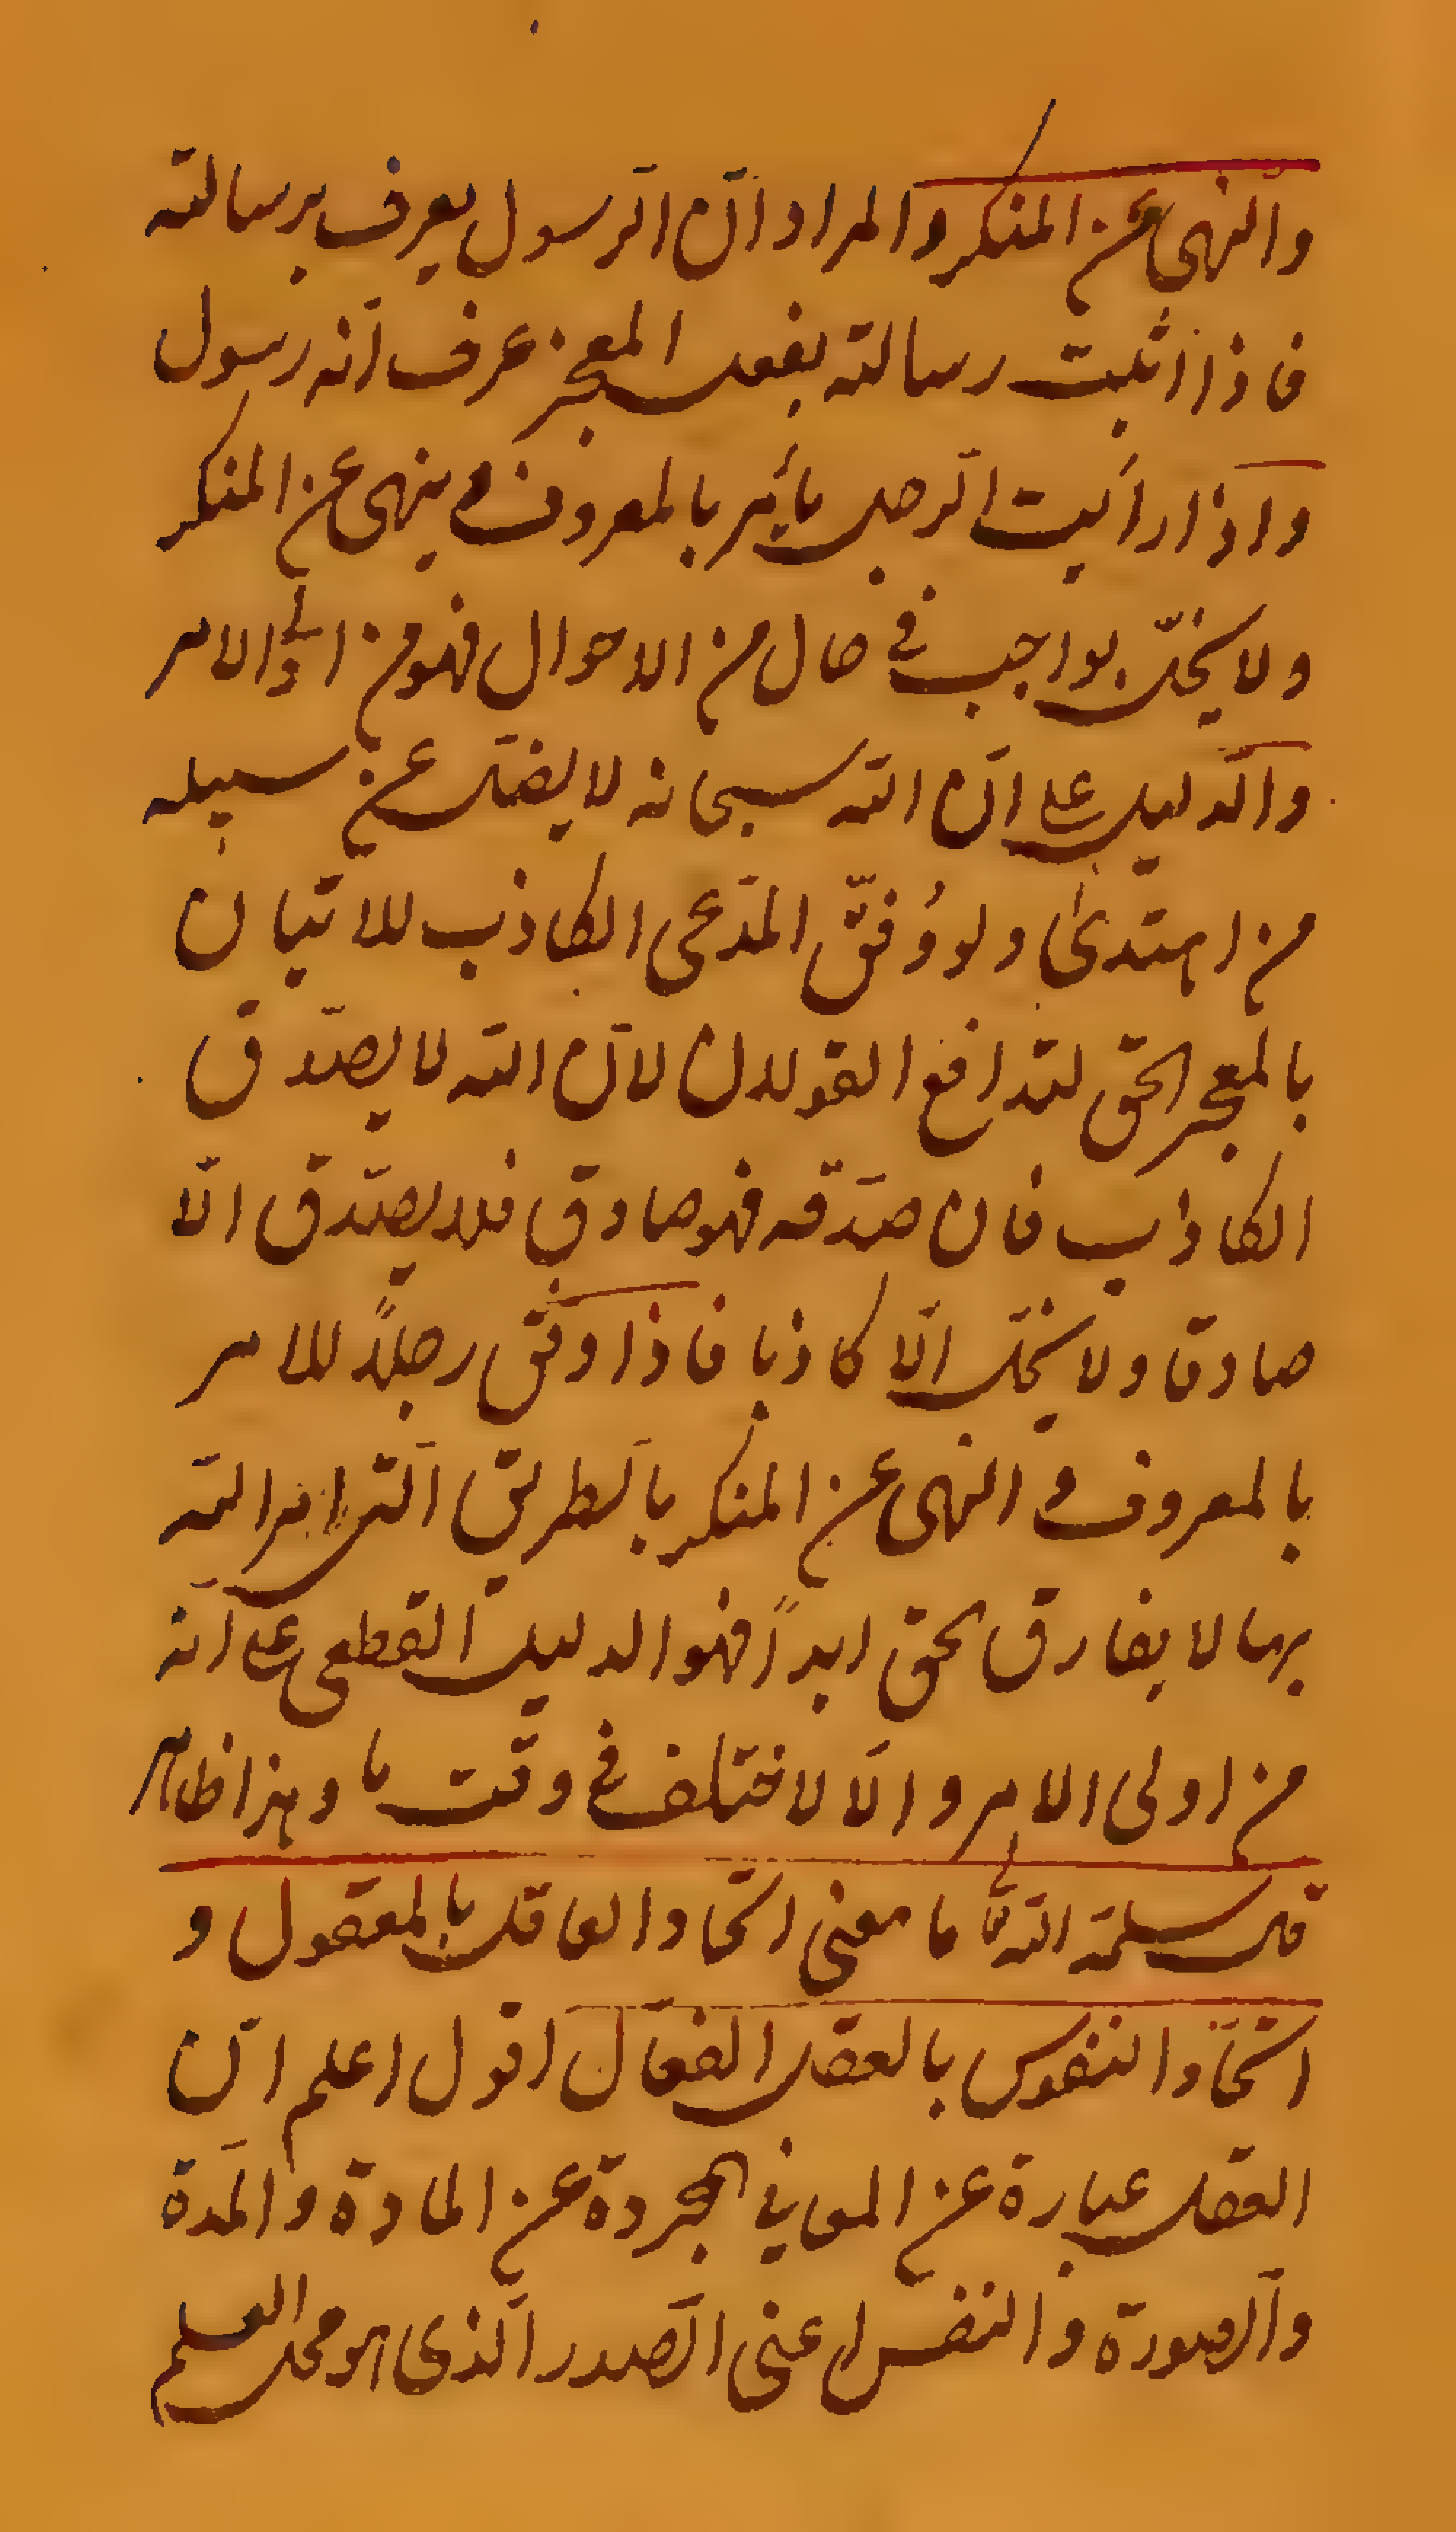 والنهى عن المنكر والمراد انّ الرّسول يعرف برسالته
فاذا اثبت رسالته بفعل المعجز عرف انّه رسول
واذا رأيت الرّجل يأمر بالمعروف و ينهى عن المنكر
ولا يخلّ بواجب فى حال من الاحوال فهو من اولى الامر
والدّليل على انّ الله سبحانه لا يضلّ عن سبيله
من اهتدى ولو وُفّق المدّعى الكاذب للاتيان
بالمعجز الحق لتدافع القولان لانّ الله لا يصدّق
الكاذب فان صدّقه فهو صادق فلا يصدّق الّا
صادقا ولا يخذل الّا كاذبا فاذا وفّق رجلاً للامر
بالمعروف و النهى عن المنكر بالطريق الّتى امر الله
بها لا يفارق الحق ابداً فهو الدليل القطعى على انّه
من اولى الامر والّا لاختلف فى وقت ما وهذا ظاهر
قال سلمه الله تعالى ما معنى اتّحاد العاقل بالمعقول و
اتّحاد النفوس بالعقل الفعّال اقول اعلم انّ
العقل عبارة عن المعانى المجردة عن المادة والمدّة
والصّورة والنفس اعنى الصّدر الّذى هو محل العلم